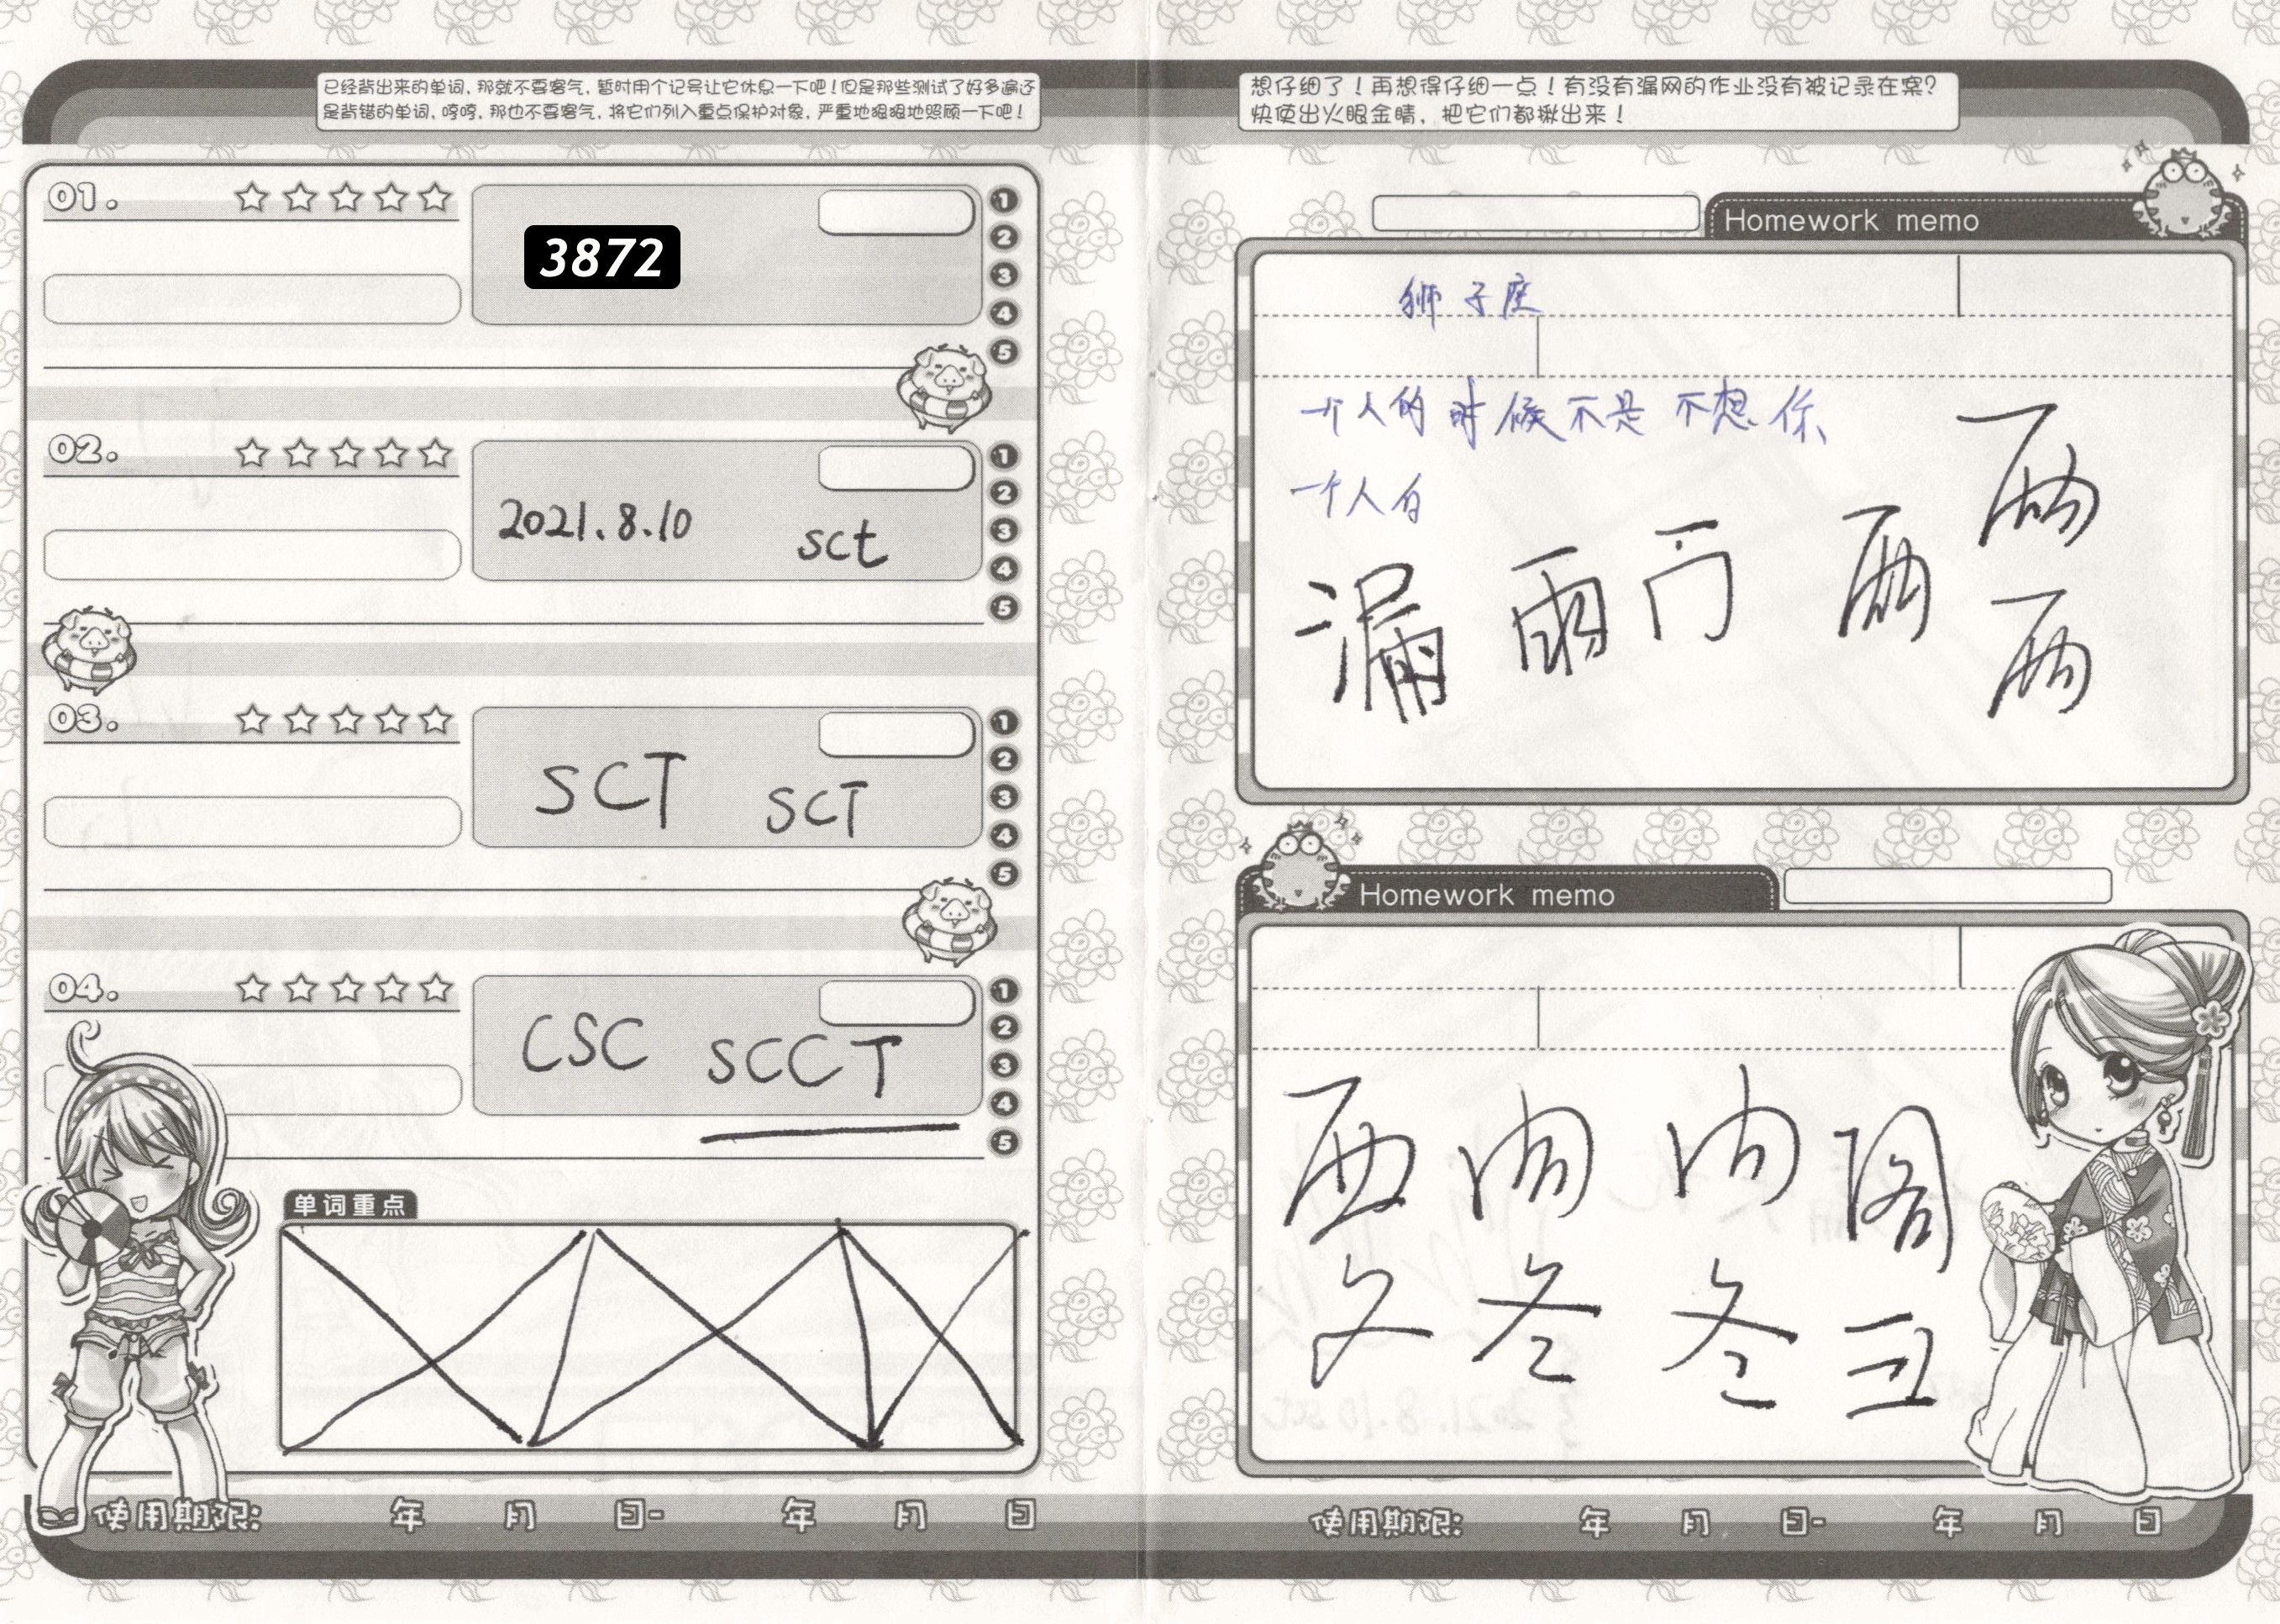 已经背出来的单词，那就不要客气，暂时用个记号让它休息一下吧！但是那些测试了好多遍还
是背错的单词，哼哼，那也不要客气，将它们列入重点保护对象，严重地狠狠地照顾一下吧！
01.
3872
1
2
3
4
5
02.
2021.8.10
sct
1
2
3
4
5
03.
SCT SCT
1
2
3
4
5
04.
CSC SCCT
1
2
3
4
5
单词重点
使用期限: 年 月 日- 年 月 日
想仔细了！再想得仔细一点！有没有漏网的作业没有被记录在案？
快使出火眼金睛，把它们都揪出来！
Homework memo
狮子座
一个人的时候不是不想你
一个人的
漏 雨
Homework memo
西 内 阁
冬 冬
使用期限: 年 月 日- 年 月 日